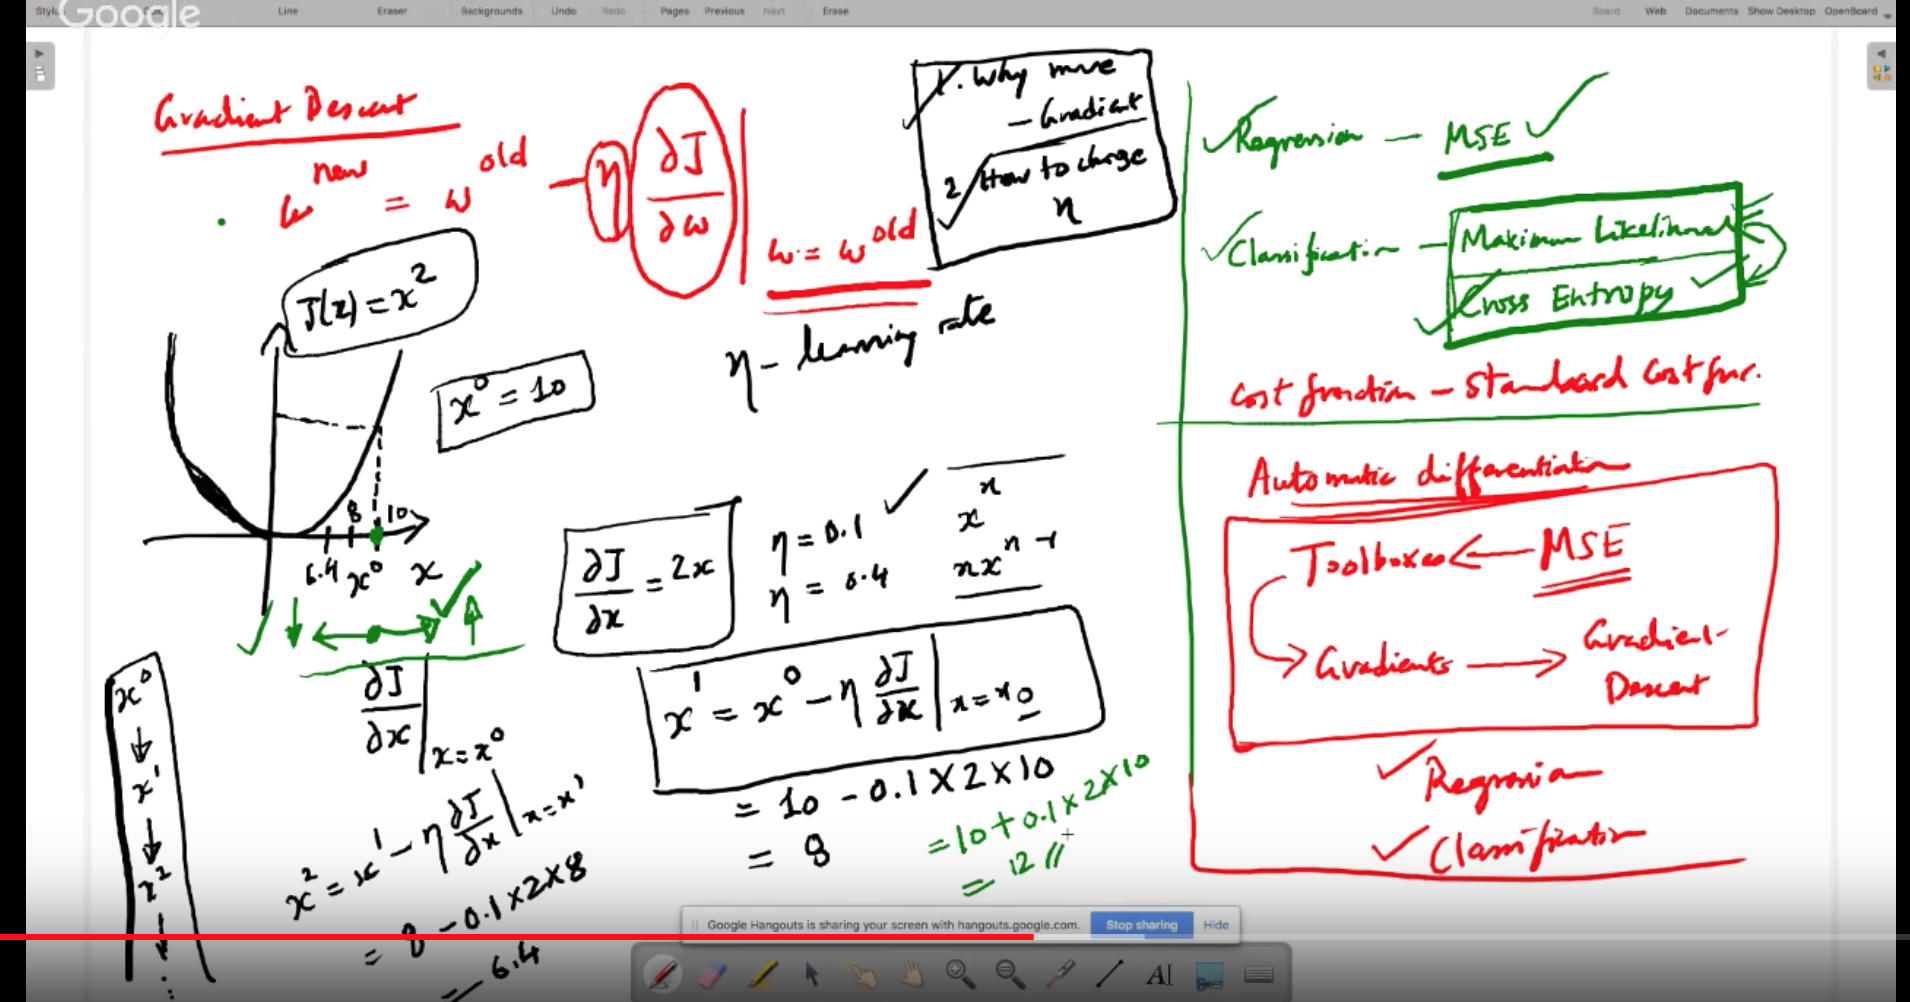 Style
Line
Eraser
Backgrounds
Undo
Redo
Pages
Previous
Next
Erase
Board
Web
Documents
Show Desktop
OpenBoard
Google
Gradient Descent
w^new = w^old - η ∂J/∂w | w = w^old
1. Why move
- Gradient
2 How to change
η
J(x) = x^2
x^0 = 10
η - learning rate
8
10
6.4 x^0 x
∂J/∂x | x = x^0
x^0
x^1
x^2
∂J/∂x = 2x
η = 0.1
η = 0.4
x^n
nx^n-1
x^1 = x^0 - η ∂J/∂x | x = x^0
= 10 - 0.1 × 2 × 10
= 8
= 10 + 0.1 × 2 × 10
= 12 //
x^2 = x^1 - η ∂J/∂x | x = x^1
= 8 - 0.1 × 2 × 8
= 6.4
Regression - MSE
Classification - Maximum Likelihood
Cross Entropy
Cost function - Standard Cost func.
Automatic differentiation
Toolboxes ← MSE
Gradients → Gradient
Descent
Regression
Classification
Google Hangouts is sharing your screen with hangouts.google.com.
Stop sharing
Hide
AI